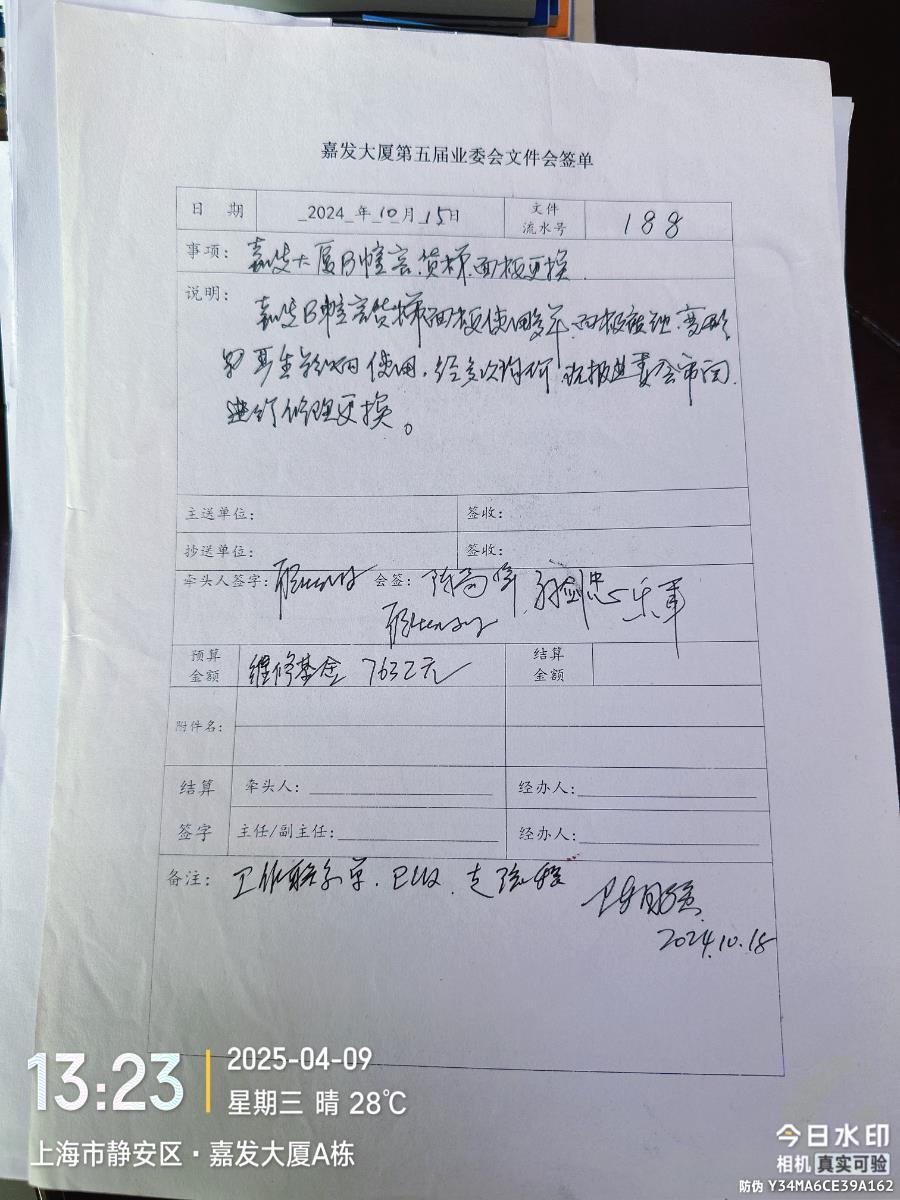 嘉发大厦第五届业委会文件会签单
日 期 2024 年 10 月 15 日 文件流水号 188
事项: 嘉发大厦B幢客、货梯面板更换.
说明:
嘉发B幢客货梯面板使用多年,面板 变形
使用,经多次 业委会审阅.
进行修理更换。
主送单位: 签收:
抄送单位: 签收:
牵头人签字: 会签:
预算金额 维修基金 7632元 结算金额
附件名:
结算 牵头人: 经办人:
签字 主任/副主任: 经办人:
备注: 工作联系单.
2024.10.18
13:23 2025-04-09
星期三 晴 28℃
上海市静安区·嘉发大厦A栋
今日水印
相机 真实可验
防伪 Y34MA6CE39A162